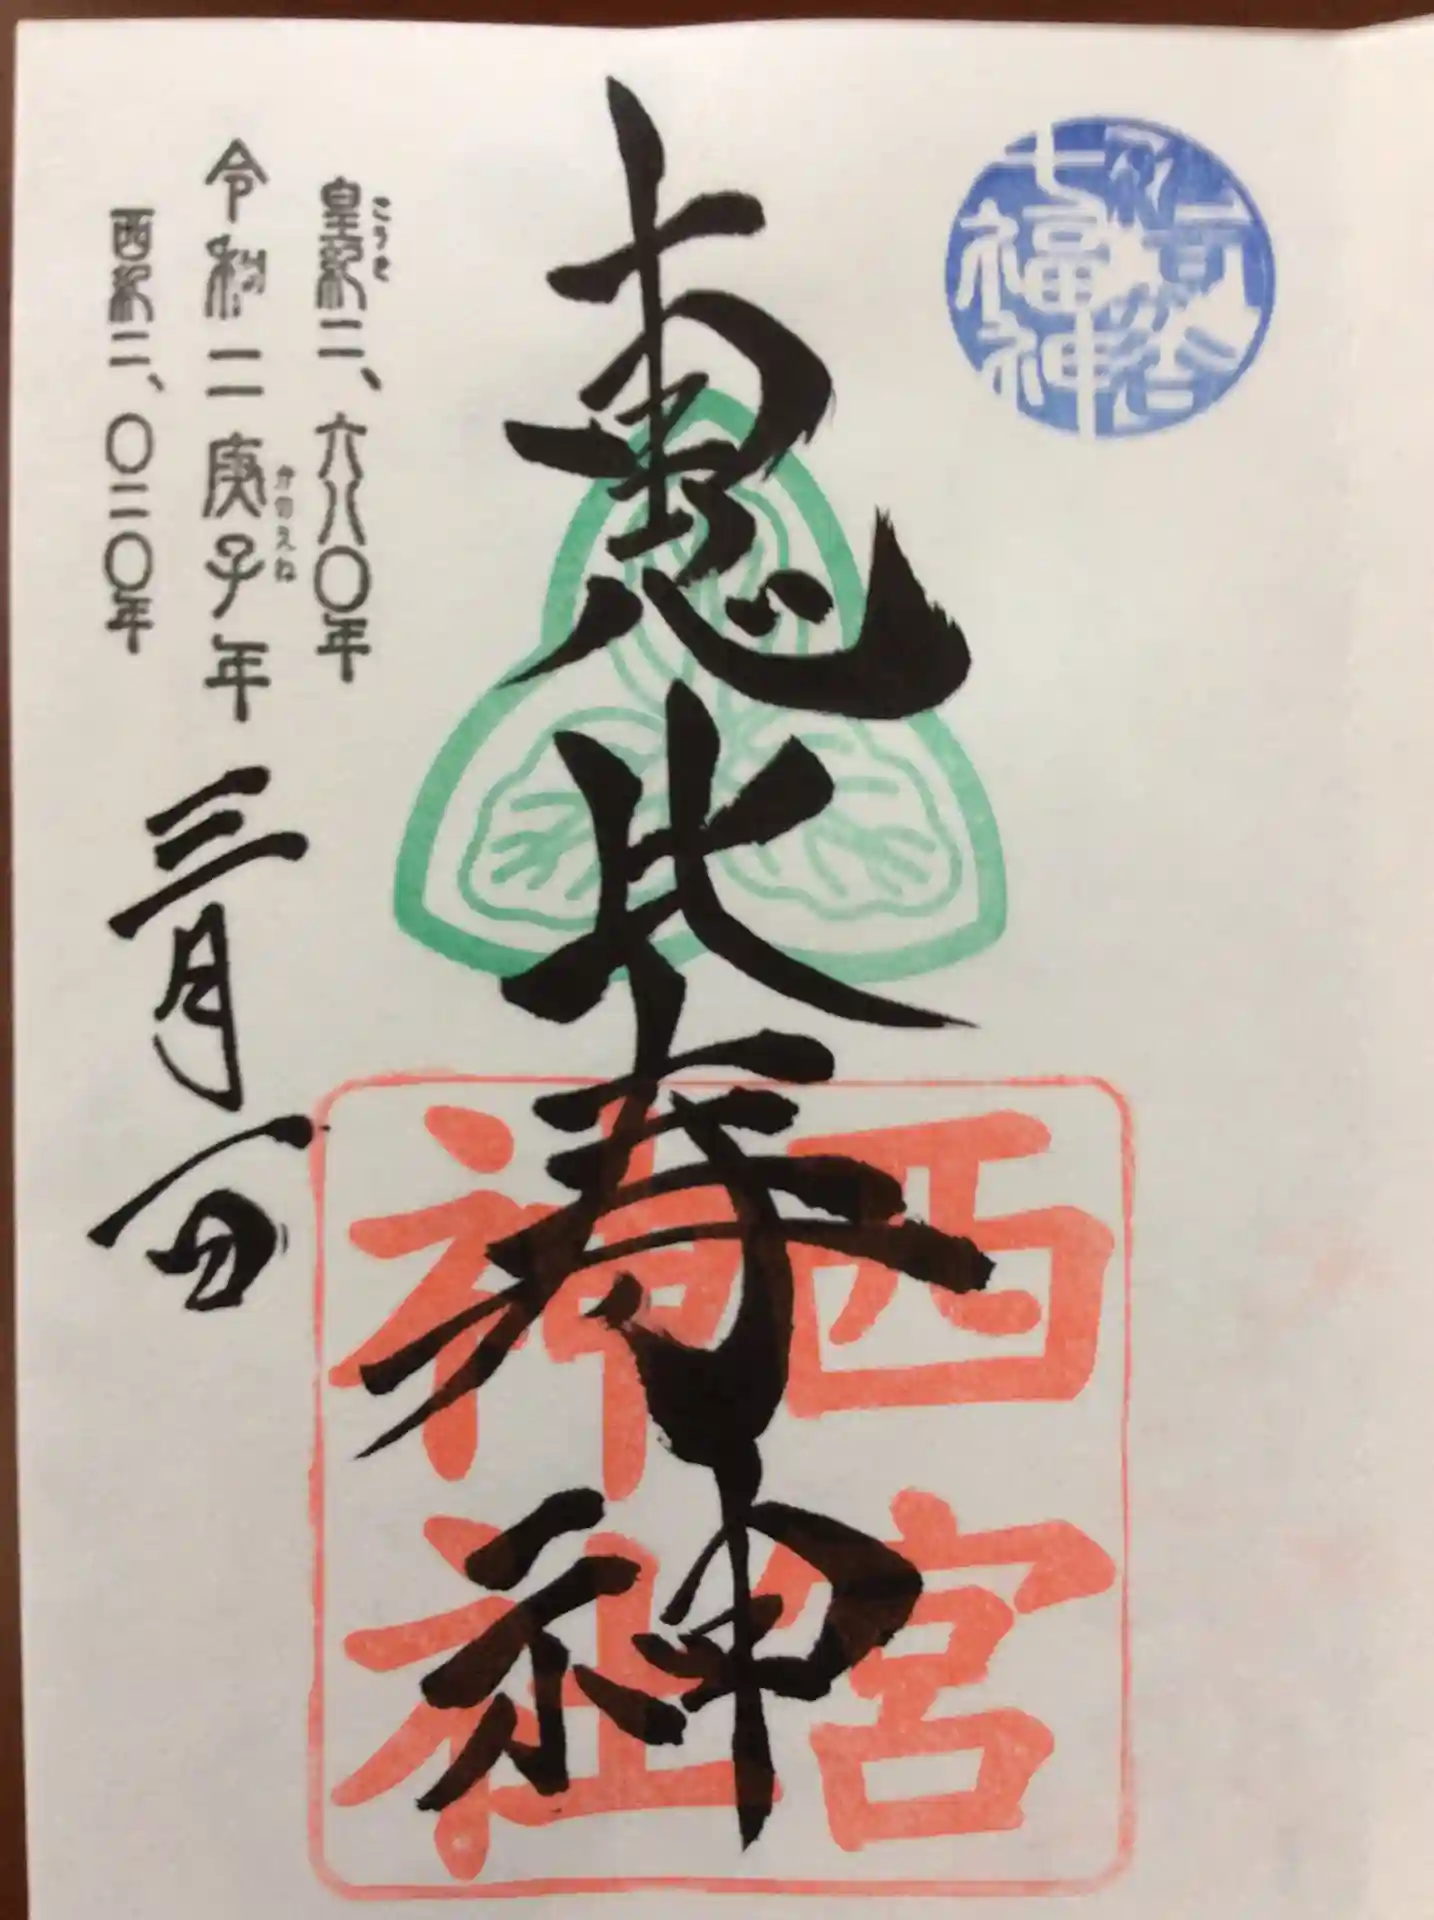 七福神
恵比寿神
西宮
神社
こうき
皇紀二、六八〇年
かのえね
令和二庚子年 三月一日
西紀二、〇二〇年